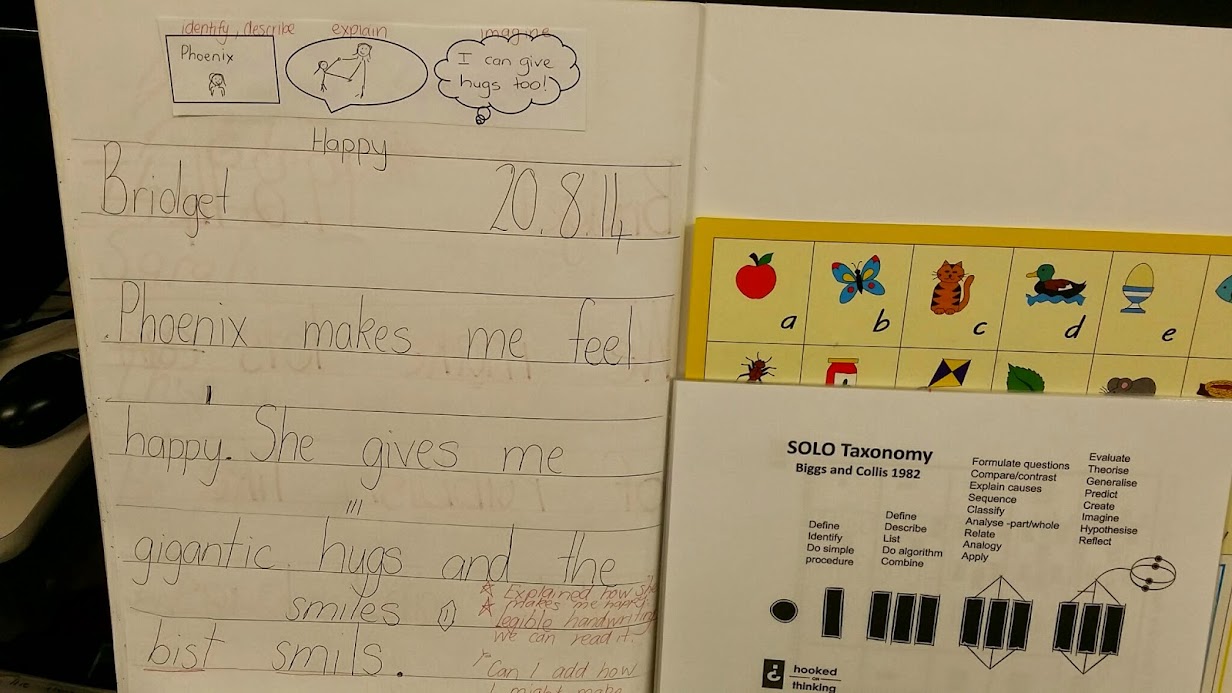 identify, describe explain imagine
Phoenix
I can give
hugs too!
Happy
Bridget 20.8.14
Phoenix makes me feel
happy. She gives me
gigantic hugs and the
smiles
bist smils.
Explained how she
makes me happy
Legible handwriting
we can read it.
Can I add how
I might make
a b c d e
SOLO Taxonomy
Biggs and Collis 1982
Define
Identify
Do simple
procedure
Define
Describe
List
Do algorithm
Combine
Formulate questions
Compare/contrast
Explain causes
Sequence
Classify
Analyse -part/whole
Relate
Analogy
Apply
Evaluate
Theorise
Generalise
Predict
Create
Imagine
Hypothesise
Reflect
hooked
on
thinking